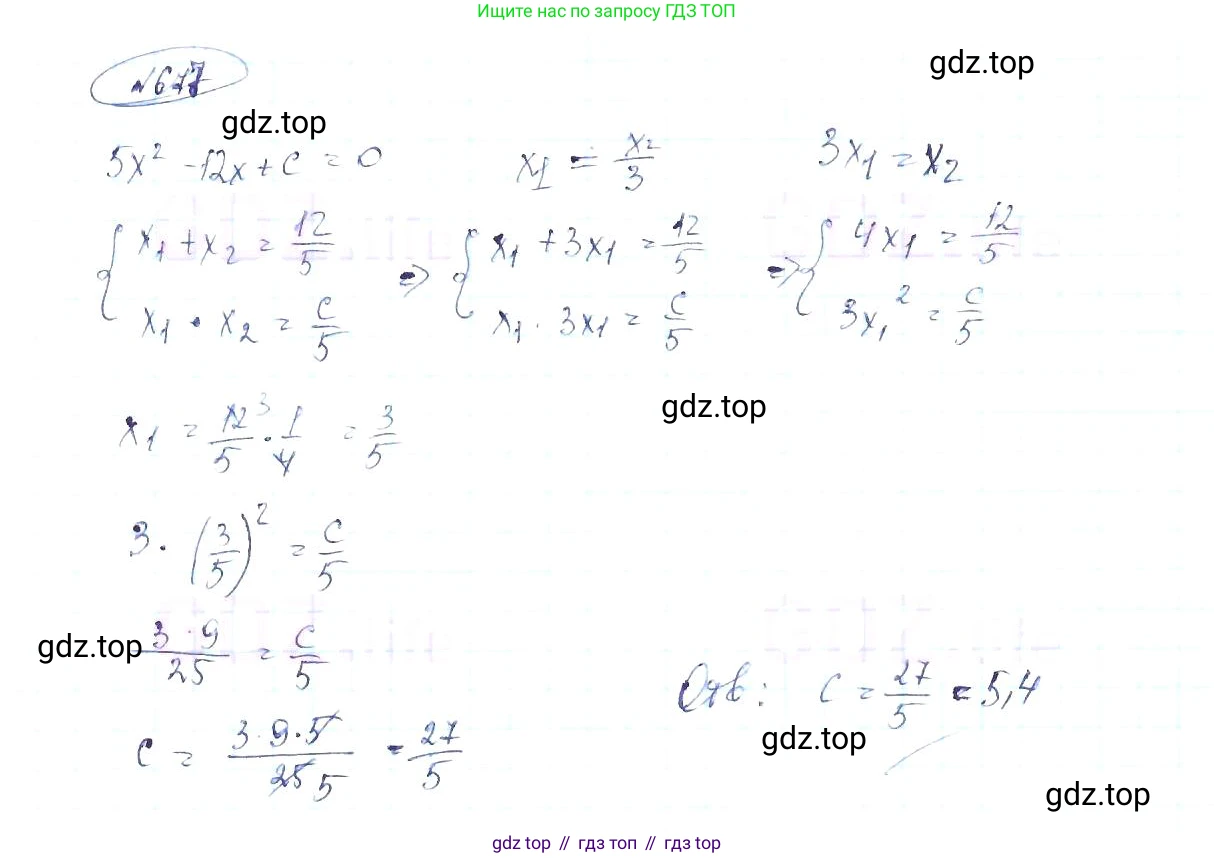 Ищите нас по запросу ГДЗ ТОП
№677
gdz.top
gdz.top
5x² - 12x + c = 0    x₁ = x₂/3    3x₁ = x₂
{ x₁ + x₂ = 12/5    => { x₁ + 3x₁ = 12/5    => { 4x₁ = 12/5
x₁ · x₂ = c/5    x₁ · 3x₁ = c/5    3x₁² = c/5
gdz.top
x₁ = 12/5 · 1/4 = 3/5
3
3 · (3/5)² = c/5
gdz.top
3 · 9/25 = c/5
Отв: c = 27/5 = 5,4
gdz.top
c = 3 · 9 · 5/25 5 = 27/5
gdz.top
gdz top // гдз топ // gdz top